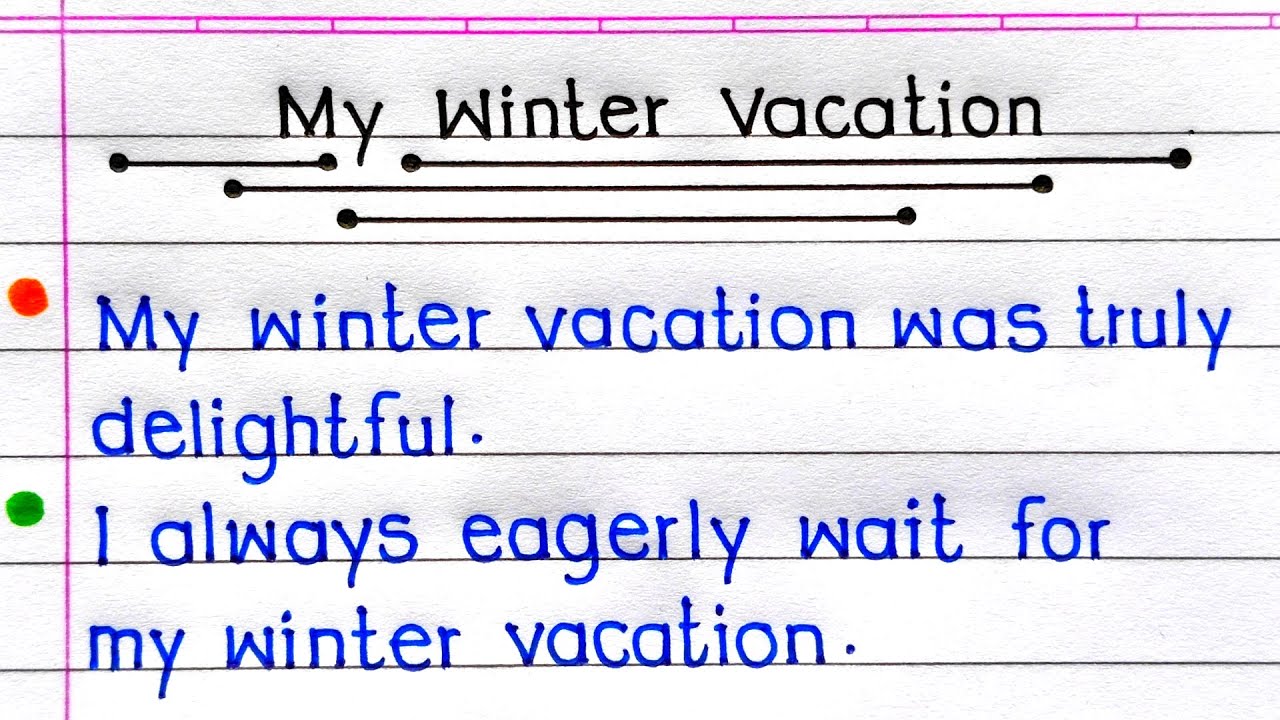 My Winter Vacation
My winter vacation was truly
delightful.
I always eagerly wait for
my winter vacation.